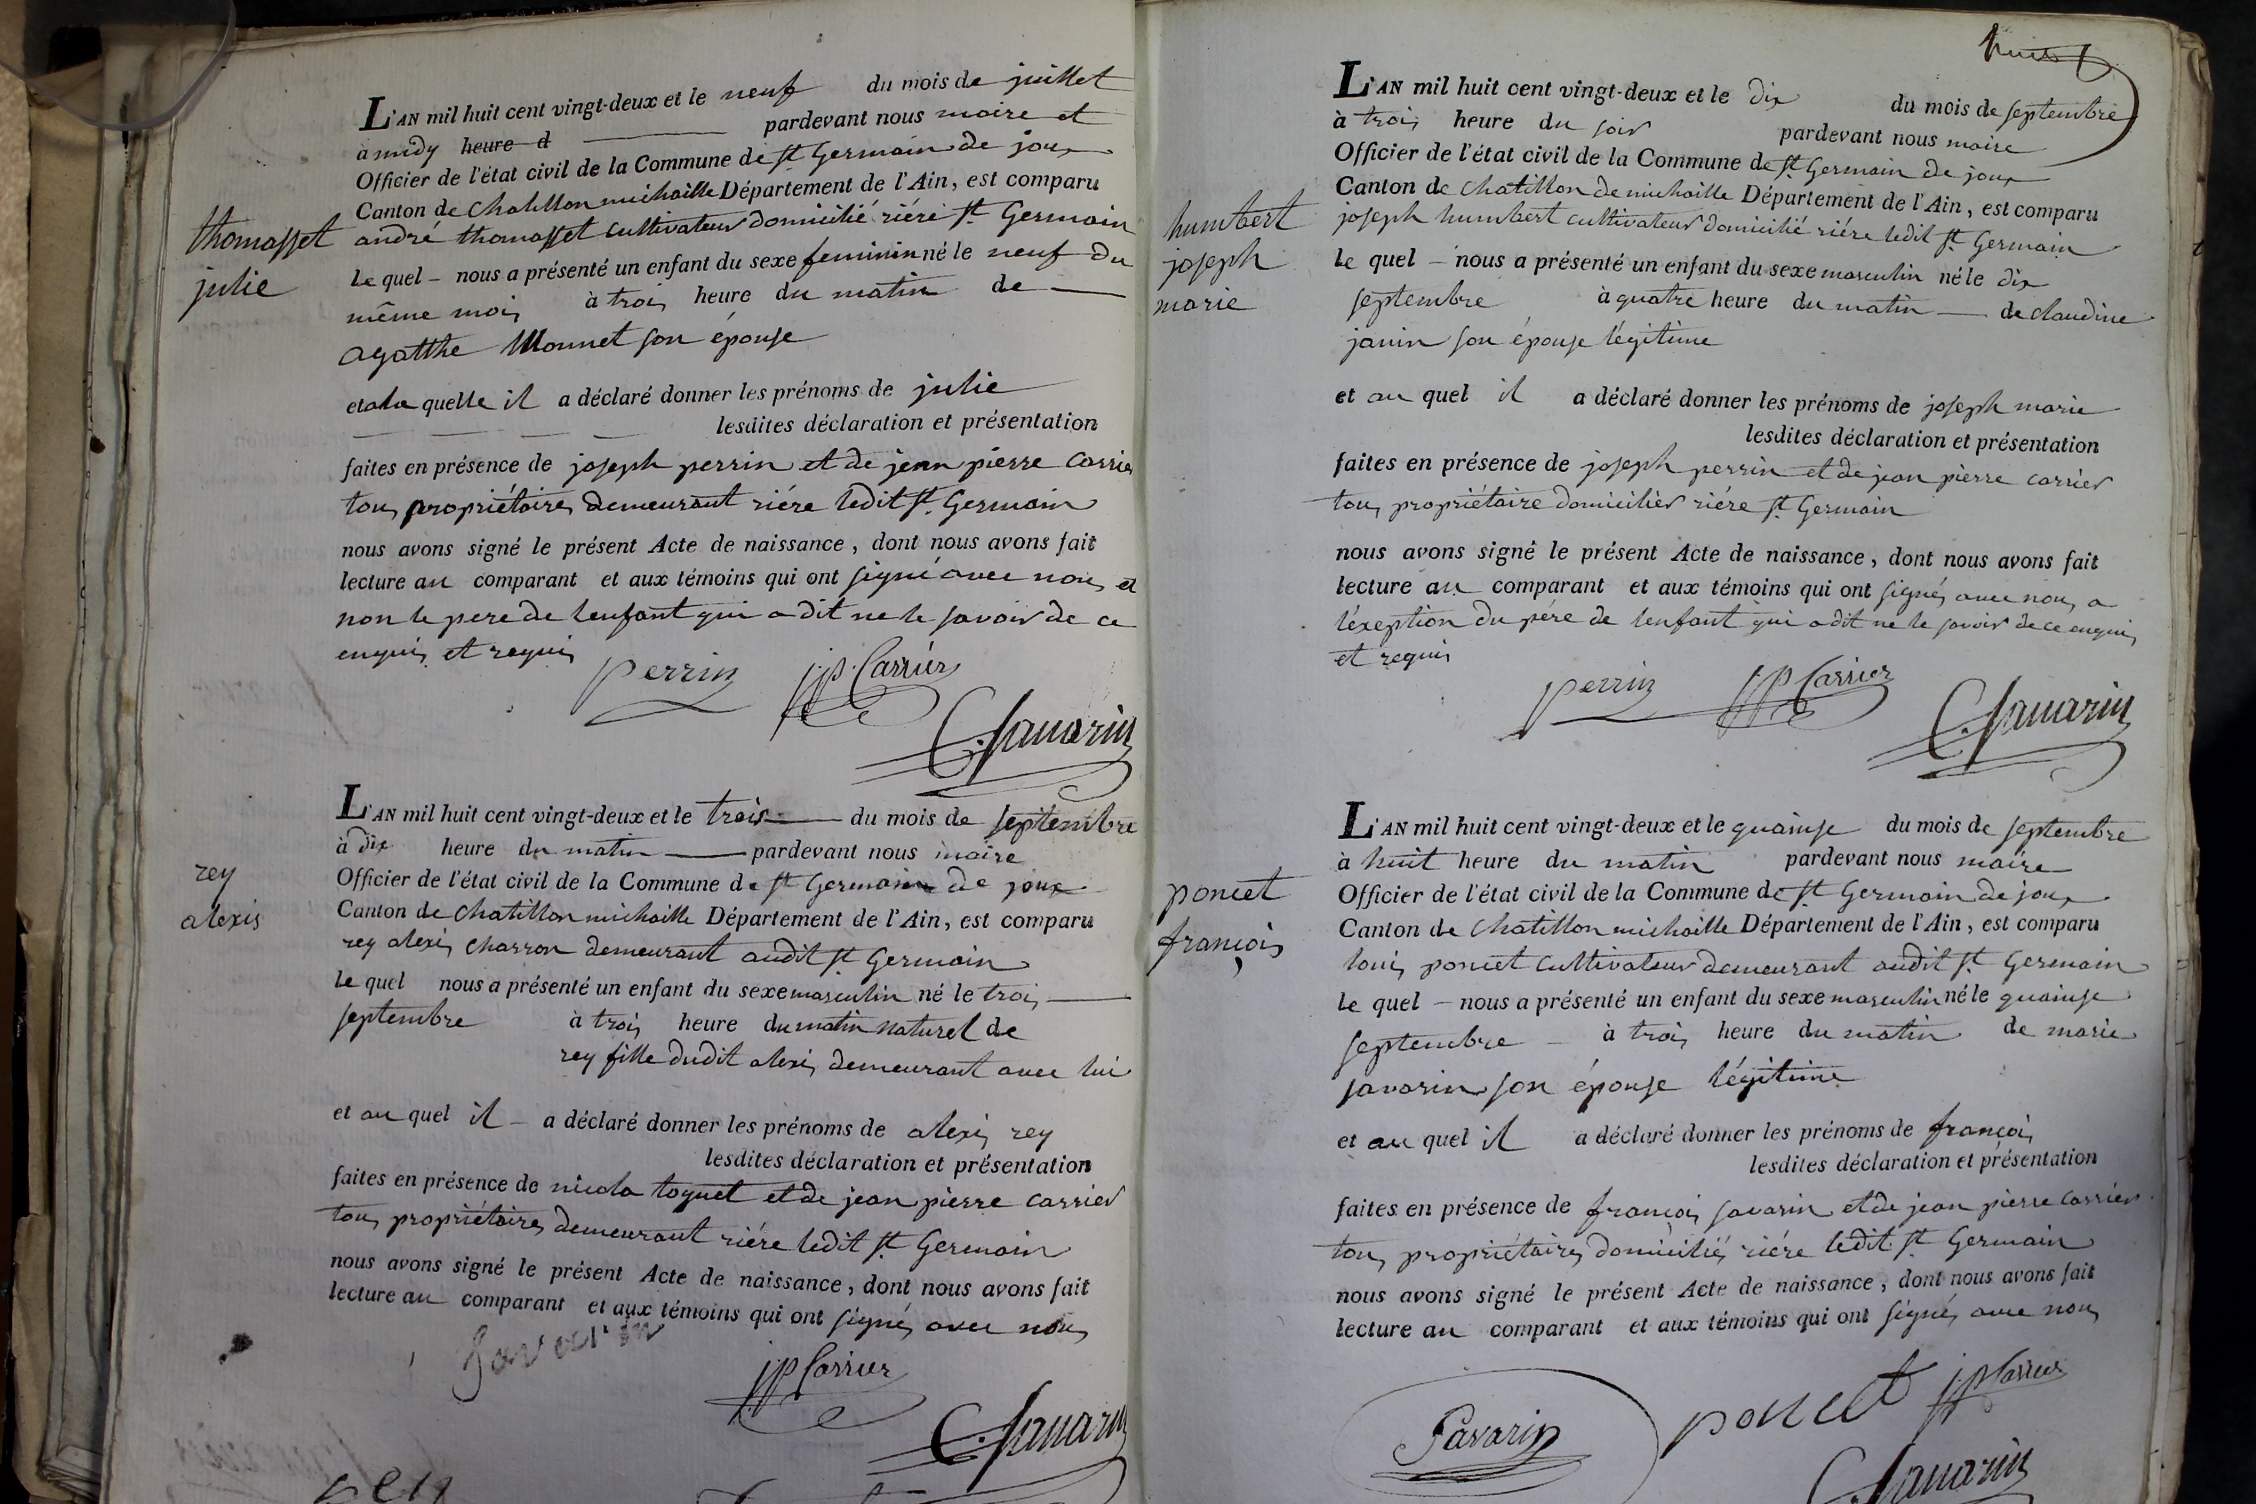 L'AN mil huit cent vingt-deux et le neuf du mois de juillet
à midy heure d pardevant nous maire et
Officier de l'état civil de la Commune de St Germain de joux
Canton de Chatillon michaille Département de l'Ain, est comparu
thomasset
julie
andré thomasset cultivateur domicilié riére St Germain
le quel - nous a présenté un enfant du sexe feminin né le neuf du
même mois à trois heure du matin de
agatthe Monnet son épouse
et a la quelle il a déclaré donner les prénoms de julie
lesdites déclaration et présentation
faites en présence de joseph perrin et de jean pierre carrier
tous propriétaires demeurant riére ledit St Germain
nous avons signé le présent Acte de naissance, dont nous avons fait
lecture au comparant et aux témoins qui ont signé avec nous et
non le pere de lenfant qui a dit ne le savoir de ce
enquis et requis
perrin jp Carrier
C. Savarin
L'AN mil huit cent vingt-deux et le trois du mois de septembre
à dix heure du matin pardevant nous maire
Officier de l'état civil de la Commune de St Germain de joux
Canton de Chatillon michaille Département de l'Ain, est comparu
rey
alexis
rey alexis charron demeurant audit St Germain
le quel nous a présenté un enfant du sexe masculin né le trois
septembre à trois heure du matin naturel de
rey fille dudit alexis demeurant avec lui
et au quel il - a déclaré donner les prénoms de alexis rey
lesdites déclaration et présentation
faites en présence de nicola toquet et de jean pierre carrier
tous propriétaires demeurant riére ledit St Germain
nous avons signé le présent Acte de naissance, dont nous avons fait
lecture au comparant et aux témoins qui ont signés avec nous
Savarin
jp Carrier
C. Savarin
rey
huit
L'AN mil huit cent vingt-deux et le dix du mois de septembre
à trois heure du soir pardevant nous maire
Officier de l'état civil de la Commune de St Germain de joux
Canton de Chatillon de michaille Département de l'Ain, est comparu
humbert
joseph
marie
joseph humbert cultivateur domicilié riére ledit St Germain
le quel - nous a présenté un enfant du sexe masculin né le dix
septembre à quatre heure du matin de claudine
janin son épouse légitime
et au quel il a déclaré donner les prénoms de joseph marie
lesdites déclaration et présentation
faites en présence de joseph perrin et de jean pierre carrier
tous propriétaire domicilier riére St Germain
nous avons signé le présent Acte de naissance, dont nous avons fait
lecture au comparant et aux témoins qui ont signés avec nous a
léxeption du pére de lenfant qui a dit ne le savoir de ce enquis
et requis
perrin JP Carrier
C. Savarin
L'AN mil huit cent vingt-deux et le quainse du mois de septembre
à huit heure du matin pardevant nous maire
Officier de l'état civil de la Commune de St Germain de joux
Canton de Chatillon michaille Département de l'Ain, est comparu
poncet
françois
louis poncet cultivateur demeurant audit St Germain
le quel - nous a présenté un enfant du sexe masculin né le quainse
septembre - à trois heure du matin de marie
savarin son épouse légitime
et au quel il a déclaré donner les prénoms de françois
lesdites déclaration et présentation
faites en présence de françois savarin et de jean pierre carrier
tous propriétaires domiciliés riére ledit St Germain
nous avons signé le présent Acte de naissance, dont nous avons fait
lecture au comparant et aux témoins qui ont signés avec nous
Savarin poncet jp Carrier
C. Savarin